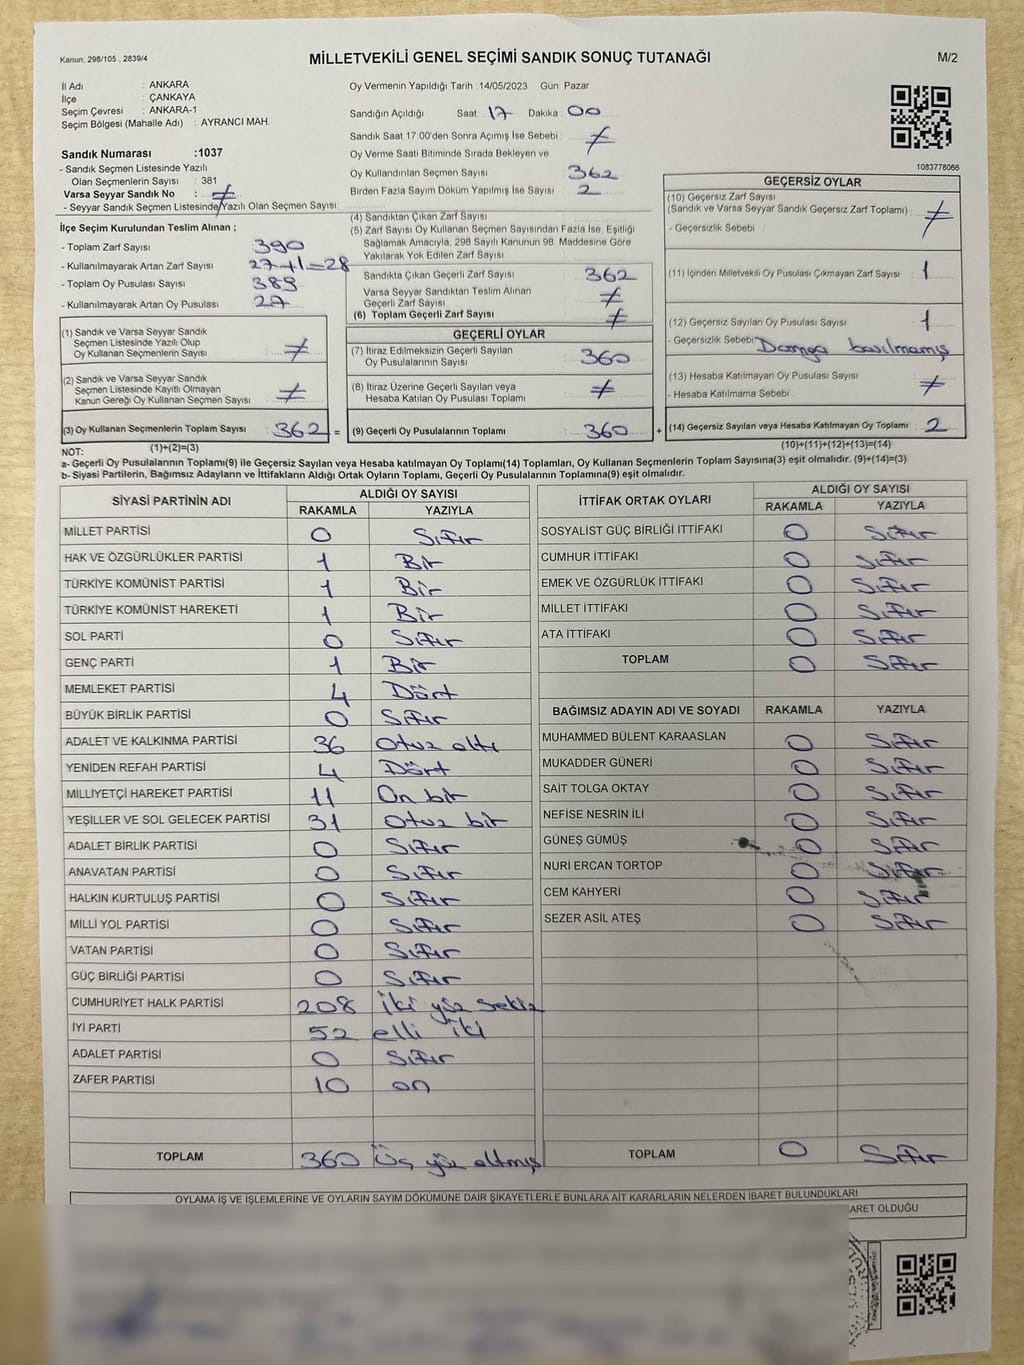 Kanun; 298/105 , 2839/4
MİLLETVEKİLİ GENEL SEÇİMİ SANDIK SONUÇ TUTANAĞI
M/2
İl Adı : ANKARA
İlçe : ÇANKAYA
Seçim Çevresi : ANKARA-1
Seçim Bölgesi (Mahalle Adı) : AYRANCI MAH.
Sandık Numarası :1037
- Sandık Seçmen Listesinde Yazılı
Olan Seçmenlerin Sayısı : 381
Varsa Seyyar Sandık No :
- Seyyar Sandık Seçmen Listesinde Yazılı Olan Seçmen Sayısı:
Oy Vermenin Yapıldığı Tarih :14/05/2023 Gün: Pazar
Sandığın Açıldığı Saat: 17 Dakika : 00
Sandık Saat 17:00'den Sonra Açımış İse Sebebi :
Oy Verme Saati Bitiminde Sırada Bekleyen ve
Oy Kullandırılan Seçmen Sayısı : 362
Birden Fazla Sayım Döküm Yapılmış İse Sayısı : 2
1083778066
İlçe Seçim Kurulundan Teslim Alınan ;
- Toplam Zarf Sayısı : 390
- Kullanılmayarak Artan Zarf Sayısı : 27+1=28
- Toplam Oy Pusulası Sayısı : 389
- Kullanılmayarak Artan Oy Pusulası : 27
(1) Sandık ve Varsa Seyyar Sandık
Seçmen Listesinde Yazılı Olup
Oy Kullanan Seçmenlerin Sayısı :
(2) Sandık ve Varsa Seyyar Sandık
Seçmen Listesinde Kayıtlı Olmayan
Kanun Gereği Oy Kullanan Seçmen Sayısı :
(3) Oy Kullanan Seçmenlerin Toplam Sayısı : 362 =
(1)+(2)=(3)
(4) Sandıktan Çıkan Zarf Sayısı :
(5) Zarf Sayısı Oy Kullanan Seçmen Sayısından Fazla İse, Eşitliği
Sağlamak Amacıyla, 298 Sayılı Kanunun 98. Maddesine Göre
Yakılarak Yok Edilen Zarf Sayısı :
Sandıkta Çıkan Geçerli Zarf Sayısı : 362
Varsa Seyyar Sandıktan Teslim Alınan
Geçerli Zarf Sayısı :
(6) Toplam Geçerli Zarf Sayısı :
GEÇERLİ OYLAR
(7) İtiraz Edilmeksizin Geçerli Sayılan
Oy Pusulalarının Sayısı : 360
(8) İtiraz Üzerine Geçerli Sayılan veya
Hesaba Katılan Oy Pusulası Toplamı :
(9) Geçerli Oy Pusulalarının Toplamı : 360 +
GEÇERSİZ OYLAR
(10) Geçersiz Zarf Sayısı
(Sandık ve Varsa Seyyar Sandık Geçersiz Zarf Toplamı) :
- Geçersizlik Sebebi :
(11) İçinden Milletvekili Oy Pusulası Çıkmayan Zarf Sayısı : 1
(12) Geçersiz Sayılan Oy Pusulası Sayısı : 1
- Geçersizlik Sebebi : Damga basılmamış
(13) Hesaba Katılmayan Oy Pusulası Sayısı :
- Hesaba Katılmama Sebebi :
(14) Geçersiz Sayılan veya Hesaba Katılmayan Oy Toplamı : 2
(10)+(11)+(12)+(13)=(14)
NOT:
a- Geçerli Oy Pusulalarının Toplamı(9) ile Geçersiz Sayılan veya Hesaba katılmayan Oy Toplamı(14) Toplamları, Oy Kullanan Seçmenlerin Toplam Sayısına(3) eşit olmalıdır. (9)+(14)=(3)
b- Siyasi Partilerin, Bağımsız Adayların ve İttifakların Aldığı Ortak Oyların Toplamı, Geçerli Oy Pusulalarının Toplamına(9) eşit olmalıdır.
SİYASİ PARTİNİN ADI ALDIĞI OY SAYISI
RAKAMLA YAZIYLA
MİLLET PARTİSİ 0 Sıfır
HAK VE ÖZGÜRLÜKLER PARTİSİ 1 Bir
TÜRKİYE KOMÜNİST PARTİSİ 1 Bir
TÜRKİYE KOMÜNİST HAREKETİ 1 Bir
SOL PARTİ 0 Sıfır
GENÇ PARTİ 1 Bir
MEMLEKET PARTİSİ 4 Dört
BÜYÜK BİRLİK PARTİSİ 0 Sıfır
ADALET VE KALKINMA PARTİSİ 36 Otuz altı
YENİDEN REFAH PARTİSİ 4 Dört
MİLLİYETÇİ HAREKET PARTİSİ 11 On bir
YEŞİLLER VE SOL GELECEK PARTİSİ 31 Otuz bir
ADALET BİRLİK PARTİSİ 0 Sıfır
ANAVATAN PARTİSİ 0 Sıfır
HALKIN KURTULUŞ PARTİSİ 0 Sıfır
MİLLİ YOL PARTİSİ 0 Sıfır
VATAN PARTİSİ 0 Sıfır
GÜÇ BİRLİĞİ PARTİSİ 0 Sıfır
CUMHURİYET HALK PARTİSİ 208 İki yüz sekiz
İYİ PARTİ 52 elli iki
ADALET PARTİSİ 0 Sıfır
ZAFER PARTİSİ 10 on
TOPLAM 360 Üç yüz altmış
İTTİFAK ORTAK OYLARI ALDIĞI OY SAYISI
RAKAMLA YAZIYLA
SOSYALİST GÜÇ BİRLİĞİ İTTİFAKI 0 Sıfır
CUMHUR İTTİFAKI 0 Sıfır
EMEK VE ÖZGÜRLÜK İTTİFAKI 0 Sıfır
MİLLET İTTİFAKI 0 Sıfır
ATA İTTİFAKI 0 Sıfır
TOPLAM 0 Sıfır
BAĞIMSIZ ADAYIN ADI VE SOYADI RAKAMLA YAZIYLA
MUHAMMED BÜLENT KARAASLAN 0 Sıfır
MUKADDER GÜNERİ 0 Sıfır
SAİT TOLGA OKTAY 0 Sıfır
NEFİSE NESRİN İLİ 0 Sıfır
GÜNEŞ GÜMÜŞ 0 Sıfır
NURİ ERCAN TORTOP 0 Sıfır
CEM KAHYERİ 0 Sıfır
SEZER ASİL ATEŞ 0 Sıfır
TOPLAM 0 Sıfır
OYLAMA İŞ VE İŞLEMLERİNE VE OYLARIN SAYIM DÖKÜMÜNE DAİR ŞİKAYETLERLE BUNLARA AİT KARARLARIN NELERDEN İBARET BULUNDUKLARI
ARET OLDUĞU